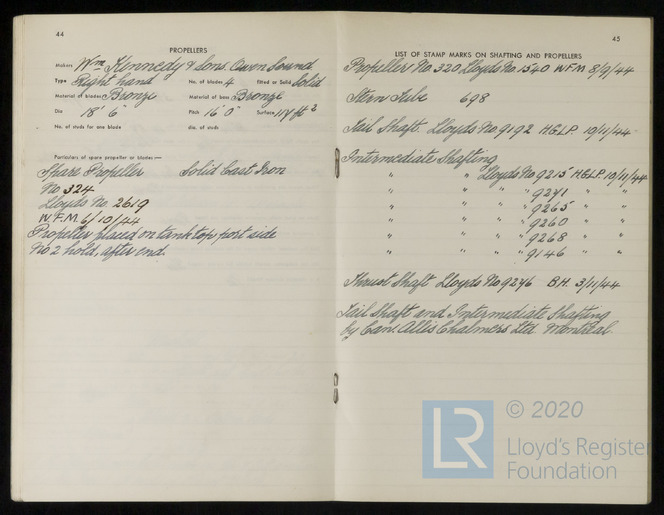 44
PROPELLERS
Makers Wm Kennedy & Sons. Owen Sound
Type Right hand No. of blades 4 fitted or Solid Solid
Material of blades Bronze Material of boss Bronze
Dia 18' 6" Pitch 16' 0" Surface 118 ft 2
No. of studs for one blade dia. of studs
Particulars of spare propeller or blades:—
Spare Propeller Solid Cast Iron
No 324
Lloyds No 2619
W.F.M. 6/10/44
Propeller placed on tank top port side
No 2 hold, after end.
45
LIST OF STAMP MARKS ON SHAFTING AND PROPELLERS
Propeller No. 320 Lloyds No. 1540 W.F.M 8/9/44
Stern Tube 698
Tail Shaft. Lloyds No 9192 H.G.L.P. 10/11/44
Intermediate Shafting
Lloyds No 9215 H.G.L.P. 10/11/44
" " " " 9241 " "
" " " " 9265 " "
" " " " 9260 " "
" " " " 9268 " "
" " " " 9146 " "
Thrust Shaft Lloyds No 9246 B.H. 3/11/44
Tail Shaft and Intermediate Shafting
by Can. Allis Chalmers Ltd Montreal.
LR © 2020
Lloyd's Register
Foundation